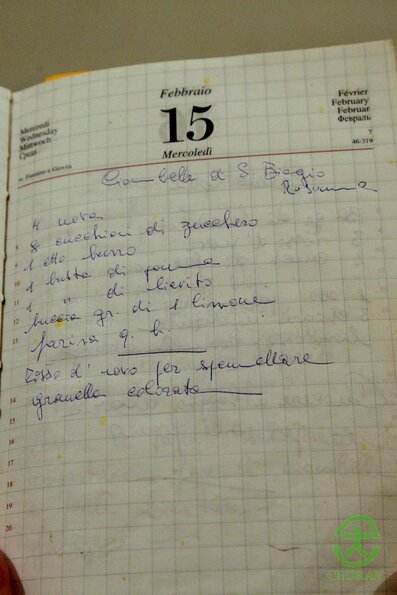 Febbraio
15
Mercoledì
Mercredi
Wednesday
Mittwoch
Среда
Février
February
Februar
Февраль
7
46-319
ss. Faustino e Giovita
Ciambella di S Biagio
Rosanna
4 uova
8 cucchiai di zucchero
1 etto burro
1 busta di panna
1 " di lievito
buccia gr. di 1 limone
farina q. b.
Rosso d'uovo per spennellare
granella colorata
8
9
10
11
12
13
14
15
16
17
18
19
20